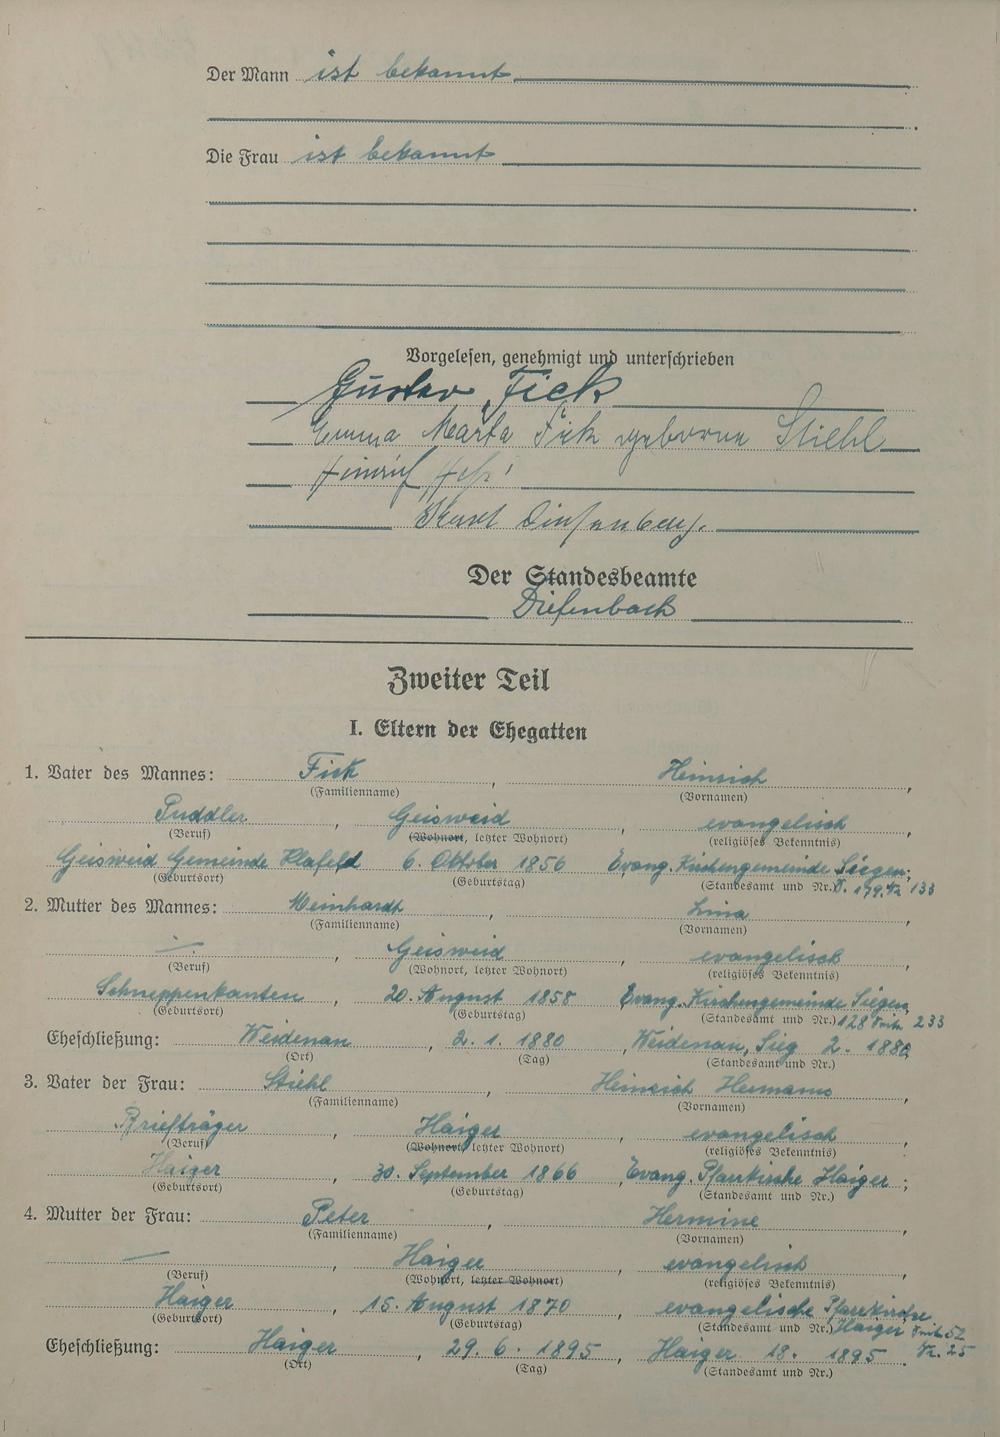 Der Mann ist bekannt
Die Frau ist bekannt
Vorgelesen, genehmigt und unterschrieben
Gustav Fick
Emma Marta Fick geborene Stiehl
Heinrich
Karl Diefenbach.
Der Standesbeamte
Diefenbach
Zweiter Teil
I. Eltern der Ehegatten
1. Vater des Mannes: Fick, Heinrich,
(Familienname) (Vornamen)
Puddler, Geisweid, evangelisch,
(Beruf) (Wohnort, letzter Wohnort) (religiöses Bekenntnis)
Geisweid Gemeinde Klafeld 6. Oktober 1856 Evang. Kirchengemeinde Siegen;
(Geburtsort) (Geburtstag) (Standesamt und Nr.) S. 179. Nr 133
2. Mutter des Mannes: Weinhardt, Lina,
(Familienname) (Vornamen)
—, Geisweid, evangelisch,
(Beruf) (Wohnort, letzter Wohnort) (religiöses Bekenntnis)
Schneppenkauten, 20. August 1858 Evang. Kirchengemeinde Siegen,
(Geburtsort) (Geburtstag) (Standesamt und Nr.) 128 233
Eheschließung: Weidenau, 2. 1. 1880, Weidenau, Sieg 2. 1880
(Ort) (Tag) (Standesamt und Nr.)
3. Vater der Frau: Stiehl, Heinrich Hermann,
(Familienname) (Vornamen)
Briefträger, Haiger, evangelisch,
(Beruf) (Wohnort, letzter Wohnort) (religiöses Bekenntnis)
Haiger, 30. September 1866, Evang. Pfarrkirche Haiger;
(Geburtsort) (Geburtstag) (Standesamt und Nr.)
4. Mutter der Frau: Peter, Hermine,
(Familienname) (Vornamen)
—, Haiger, evangelisch,
(Beruf) (Wohnort, letzter Wohnort) (religiöses Bekenntnis)
Haiger, 15. August 1870, evangelische Pfarrkirche
(Geburtsort) (Geburtstag) (Standesamt und Nr.) Haiger 52
Eheschließung: Haiger, 29. 6. 1895, Haiger 18. 1895. Nr. 25
(Ort) (Tag) (Standesamt und Nr.)